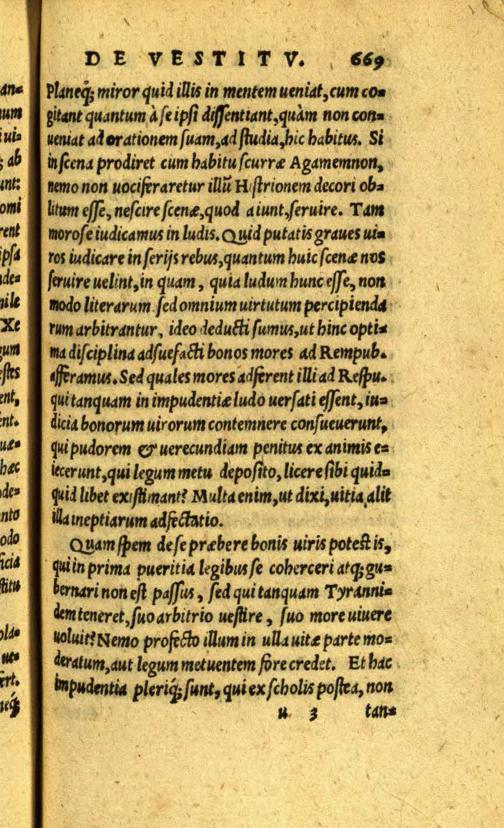 DE VESTITV. 669
Planeq́; miror quid illis in mentem ueniat, cum co=
gitant quantum à se ipsi dissentiant, quàm non con=
ueniat ad orationem suam, ad studia, hic habitus. Si
in scena prodiret cum habitu scurræ Agamemnon,
nemo non uociferaretur illũ Histrionem decori ob=
litum esse, nescire scenæ, quod aiunt, seruire. Tam
morose iudicamus in ludis. Quid putatis graues ui=
ros iudicare in serijs rebus, quantum huic scenæ nos
seruire uelint, in quam, quia ludum hunc esse, non
modo literarum sed omnium uirtutum percipienda
rum arbitrantur, ideo deducti sumus, ut hinc opti=
ma disciplina adsuefacti bonos mores ad Rempub.
afferamus. Sed quales mores adferent illi ad Respu.
qui tanquam in impudentiæ ludo uersati essent, iu=
dicia bonorum uirorum contemnere consueuerunt,
qui pudorem & uerecundiam penitus ex animis e=
iecerunt, qui legum metu deposito, licere sibi quid=
quid libet existimant? Multa enim, ut dixi, uitia alit
illa ineptiarum adfectatio.
Quam spem de se præbere bonis uiris potest is,
qui in prima pueritia legibus se coherceri atq; gu=
bernari non est passus, sed qui tanquam Tyranni=
dem teneret, suo arbitrio uestire, suo more uiuere
uoluit? Nemo profecto illum in ulla uitæ parte mo=
deratum, aut legum metuentem fore credet. Et hac
impudentia pleriq́; sunt, qui ex scholis postea, non
u 3 tan=